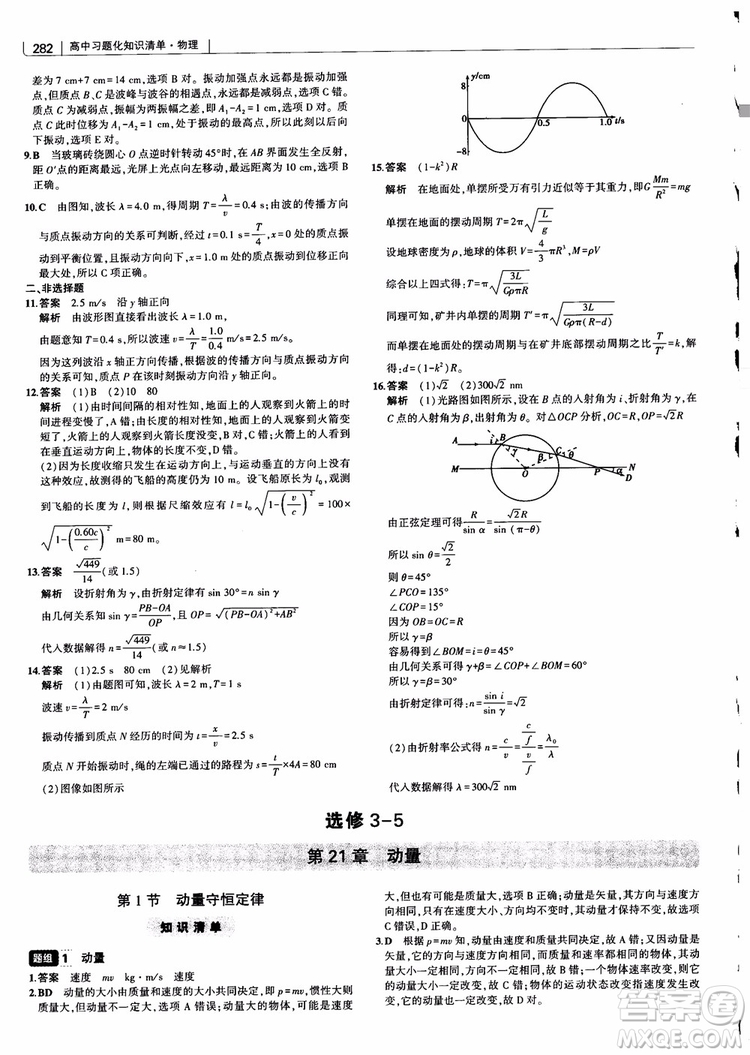 282 高中习题化知识清单·物理
差为 7 cm+7 cm=14 cm，选项 B 对。振动加强点永远是振动加强
点，但质点 B、C 是波峰与波谷的相遇点，永远减弱，选项 C 错。
质点 C 为减弱点，振幅为两振幅之差，即 A₁-A₂，选项 D 对。质点
C 此时位移为 A₁-A₂，处于振动的最大位移处，下一时刻将向平衡位置
9.B 当玻璃砖绕圆心 O 点逆时针转动 45°时，在 AB 界面发生全反射，
距 O'点的距离先变大，光屏上光点先向右偏移，随后消失，选项 B
正确。
10.C 由图知，波长 λ=4.0 m，得周期 T=λ/v=0.4 s；由波的传播方向
与质点振动方向的关系可判断，经过 t=0.1 s=T/4，x=0 处的质点振
动到平衡位置，且向下振动；x=3 m 处的质点振动到位移正向
最大处。故选项 C 正确。
二、非选择题
11.答案 2.5 m/s 沿 y 轴正向
解析 由波形图直接看出波长 λ=1.0 m，
由题意知 T=0.4 s，所以波速 v=λ/T=1.0/0.4 m/s=2.5 m/s。
因为该列波沿 x 轴正方向传播，根据波的传播方向与质点振动方向
的关系可知，质点 P 在该时刻运动方向沿 y 轴正向。
12.答案 (1)B (2)10 80
解析 (1)由时间间隔的相对性知，地面上的人观察到火箭上的时
间进程变慢了，选项 B 对；地面上的人观察到火箭变
短了，火箭上的人观察到火箭长度没变，选项 A 错；火箭上的人
在垂直运动方向上，物体的长度不变，选项 C、D 错。
(2)因为长度收缩只发生在运动方向上，与运动垂直的方向上没有
这种效应，故测得的飞船的高度仍为 10 m。设飞船原长为 l₀，观
测到飞船的长度为 l，则根据尺缩效应有 l=l₀√(1-(v/c)²)=100×
√(1-(0.60c/c)²) m=80 m。
13.答案 √449/14(或 1.5)
解析 设折射角为 γ，由折射定律有 sin 30°=n sin γ
由几何关系知 sin γ=(PB-OA)/OP，且 OP=√((PB-OA)²+AB²)
代入数据解得 n=√449/14(或 n≈1.5)
14.答案 (1)2.5 s 80 cm (2)见解析
解析 (1)由题图可知，波长 λ=2 m，周期 T=1 s
波速 v=λ/T=2 m/s
振动传播到质点 N 经历的时间 t=x/v=2.5 s
质点 N 开始振动时，绳的左端已通过的路程 s=t/T×4A=80 cm
(2)图像如图所示
y/cm
8
0
-8
0.5
1.0 t/s
15.答案 (1-k²)R
解析 在地面处，单摆所受万有引力近似等于其重力，即 G Mm/R²=mg
单摆在地面的摆动周期 T=2π√(L/g)
设地球密度为 ρ，地球的体积 V=4/3πR³，M=ρV
综合以上四式得：T=π√(3L/GρπR)
同理可知，矿井内单摆的周期 T'=π√(3L/Gρπ(R-d))
而单摆在地面处的摆动周期与在矿井底部摆动周期之比 T/T'=k
解得：d=(1-k²)R。
16.答案 (1)√2 (2)300√2 nm
解析 (1)光路图如图所示，设在 B 点的入射角为 i、折射角为 γ，在
C 点的入射角为 β，出射角为 θ。对△OCP 分析，
A i B C θ
γ β
M O P α N
D
由正弦定理可得 R/sin α=√2R/sin(π-θ)
所以 sin θ=√2/2
则 θ=45°
∠PCO=135°
因为 OB=OC=R
所以 γ=β
容易得到∠BOM=i=θ=45°
由几何关系得 γ+β=∠COP+∠BOM=60°
所以 γ=30°
由折射定律可得：n=sin i/sin γ=√2
(2)由折射率公式得 n=c/v=(c/f)/(v/f)=λ₀/λ
代入数据解得 λ=300√2 nm
选修 3-5
第 21 章 动量
第 1 节 动量守恒定律
知识清单
题组 1 动量
1.答案 速度 mv kg·m/s 速度
2.BD 动量的大小由质量和速度的大小共同决定，即 p=mv，惯性大则
质量大，但动量不一定大，选项 A 错误；动量大的物体，可能是速度
大，但也有可能是质量大，选项 B 正确；动量是矢量，其方向与速度方
向相同，只有在速度大小、方向均不变时，其动量才保持不变，故选项
C 错误、D 正确。
3.D 根据 p=mv 可知动量由质量和速度共同决定，故 A 错；又动量是
矢量，它的方向与速度方向相同，而质量一定的物体，其动
量越大速率一定越大，故 D 正确，B 错；动量变化，可能是速度大小不
变而方向改变，物体的运动状态改变，故 C 错。